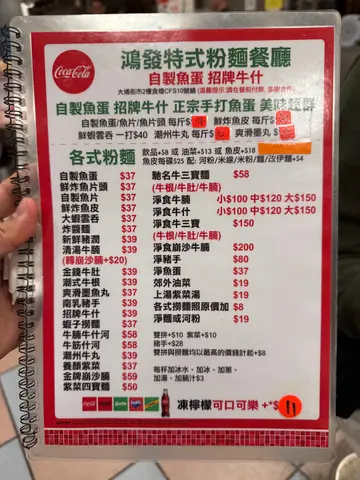 Coca-Cola
鴻發特式粉麵餐廳
自製魚蛋 招牌牛什
大埔街市2樓食檔CFS10號舖
自製魚蛋 招牌牛什 正宗手打魚蛋 美味超群
自製魚蛋/魚片/魚片頭 每斤$ 鮮炸魚皮 每斤$
鮮蝦雲吞 一打$40 潮州牛丸 每斤$ 爽滑墨丸 $
各式粉麵
飲品+$8 或 油菜+$13 或 魚皮+$18
魚皮每碟$25 配: 河粉/米線/米粉/麵/改伊麵+$4
自製魚蛋 $37
鮮炸魚片頭 $37
自製魚片 $37
鮮炸魚皮 $37
大蝦雲吞 $37
炸醬麵 $37
新鮮豬潤 $39
清湯牛腩 $39
(轉崩沙腩+$20)
金錢牛肚 $39
潮式牛根 $39
爽滑墨魚丸 $37
南乳豬手 $39
招牌牛什 $39
蝦子撈麵 $37
牛腩牛什河 $58
牛筋什河 $58
潮州牛丸 $39
養顏紫菜 $37
金牌崩沙腩 $59
紫菜四寶麵 $50
馳名牛三寶麵 $58
(牛根/牛肚/牛腩)
淨食牛腩 小$100 中$120 大$150
淨食牛什 小$100 中$120 大$150
淨食牛三寶 $150
(牛根/牛肚/牛腩)
淨食崩沙牛腩 $200
淨豬手 $80
淨魚蛋 $37
郊外油菜 $19
上湯紫菜湯 $19
各式撈麵照原價加 $8
淨麵或河粉 $19
雙拼+$10 紫菜+$10
豬手+$28
雙拼與撈麵均以最高的價錢計起+$8
每杯加冰水、加冰、加蔥、
加湯、加腩汁$3
凍檸檬可口可樂 +$11